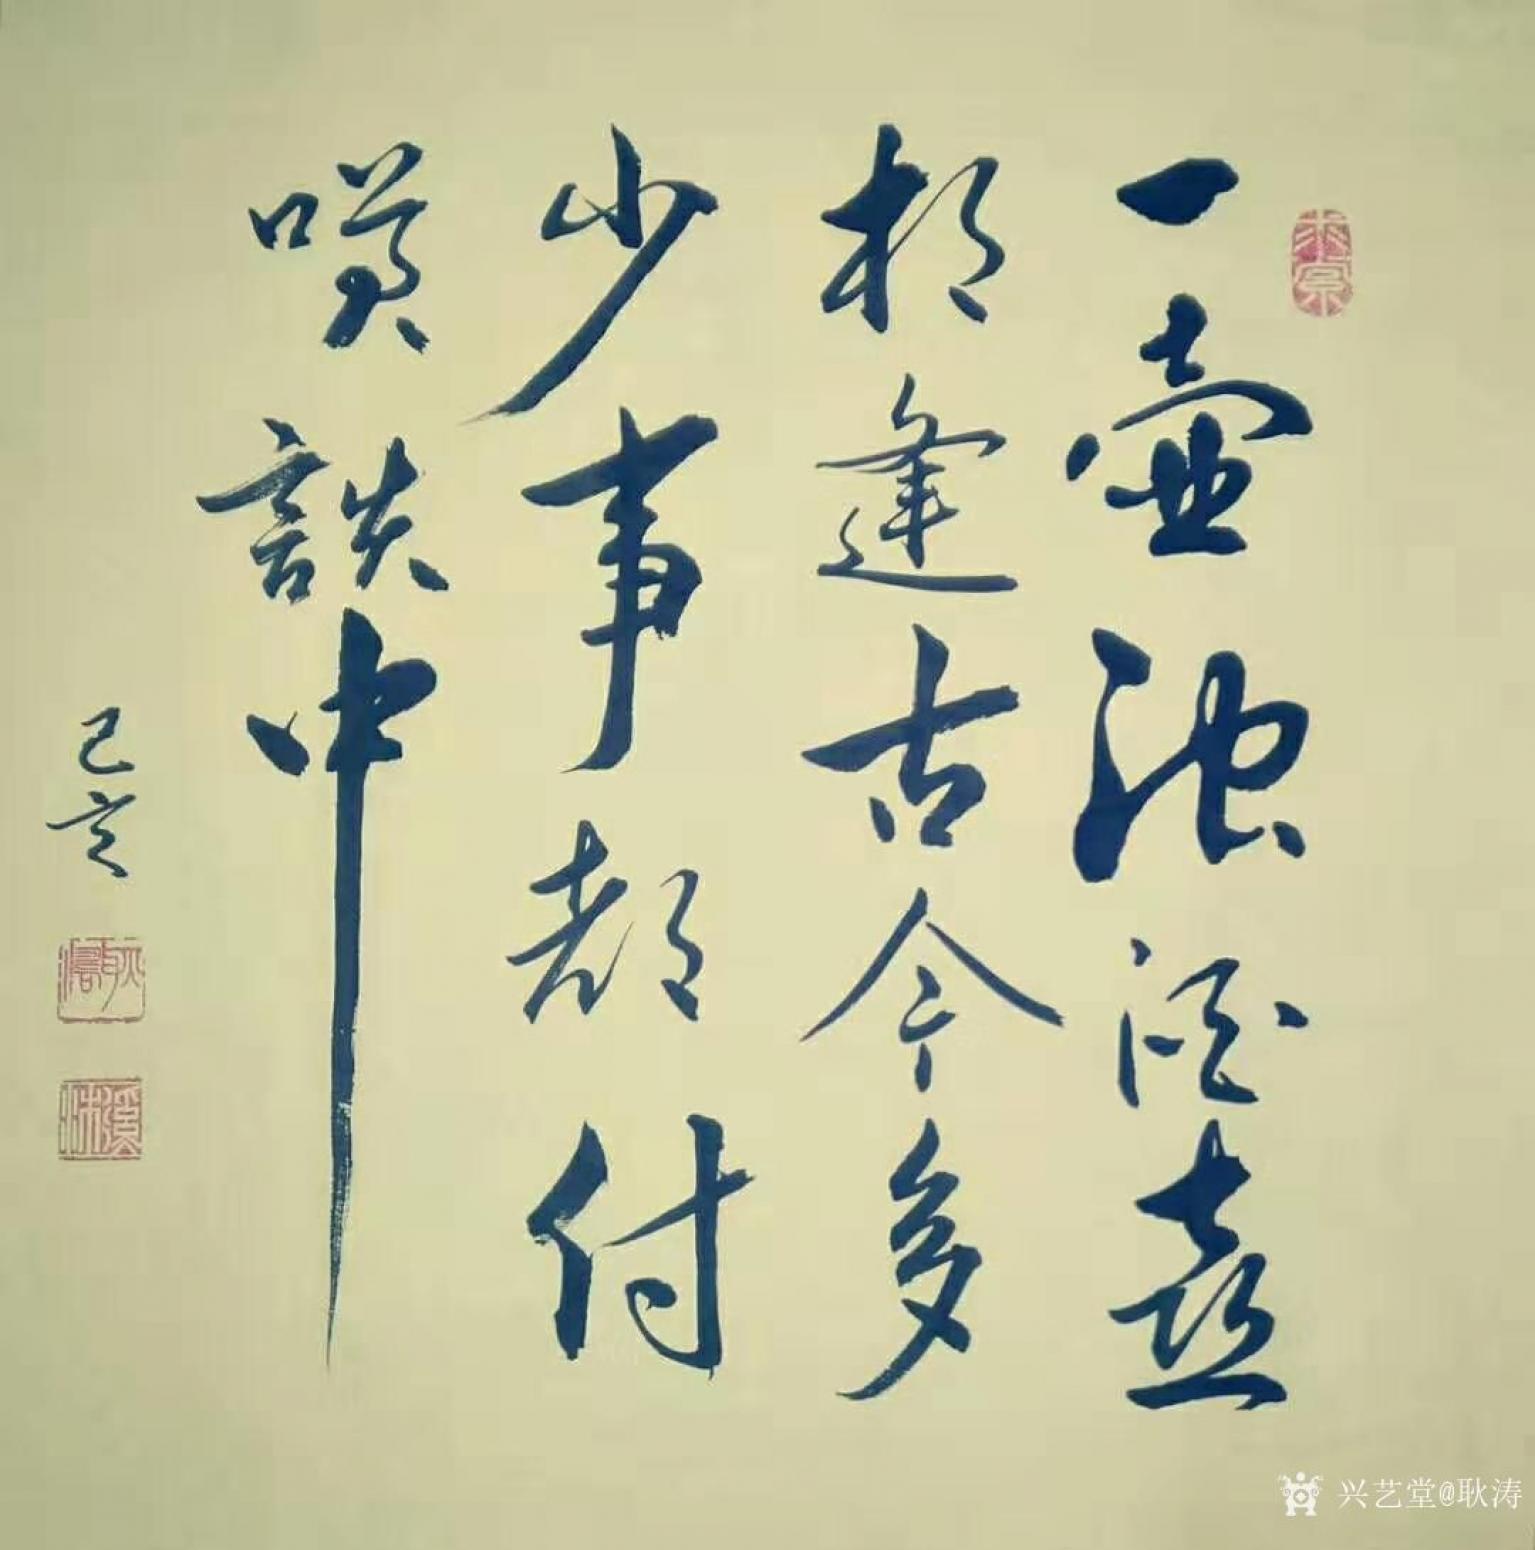 一壺浊酒喜
相逢古今多
少事都付
笑談中
己亥
耿濤
兴艺堂@耿涛